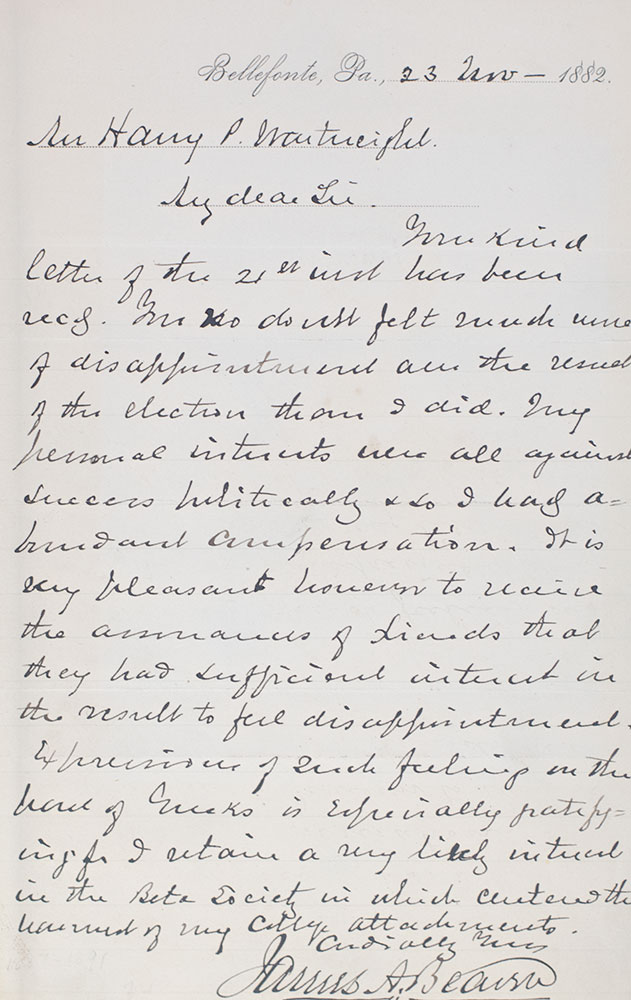 Bellefonte, Pa., 23 Nov – 1882.
Mr Harry P. Wainwright.
My dear Sir.
Your kind
letter of the 21st inst has been
recd. You no doubt felt much more
of disappointment over the result
of the election than I did. My
personal interests were all against
success politically & so I had a=
bundant compensation. It is
very pleasant however to receive
the assurances of friends that
they had sufficient interest in
the result to feel disappointment.
Expressions of such feeling on the
part of Greeks is especially gratify=
ing for I retain a very lively interest
in the Beta Society in which centered the
warmest of my College attachments.
Cordially Yours
James A. Beaver